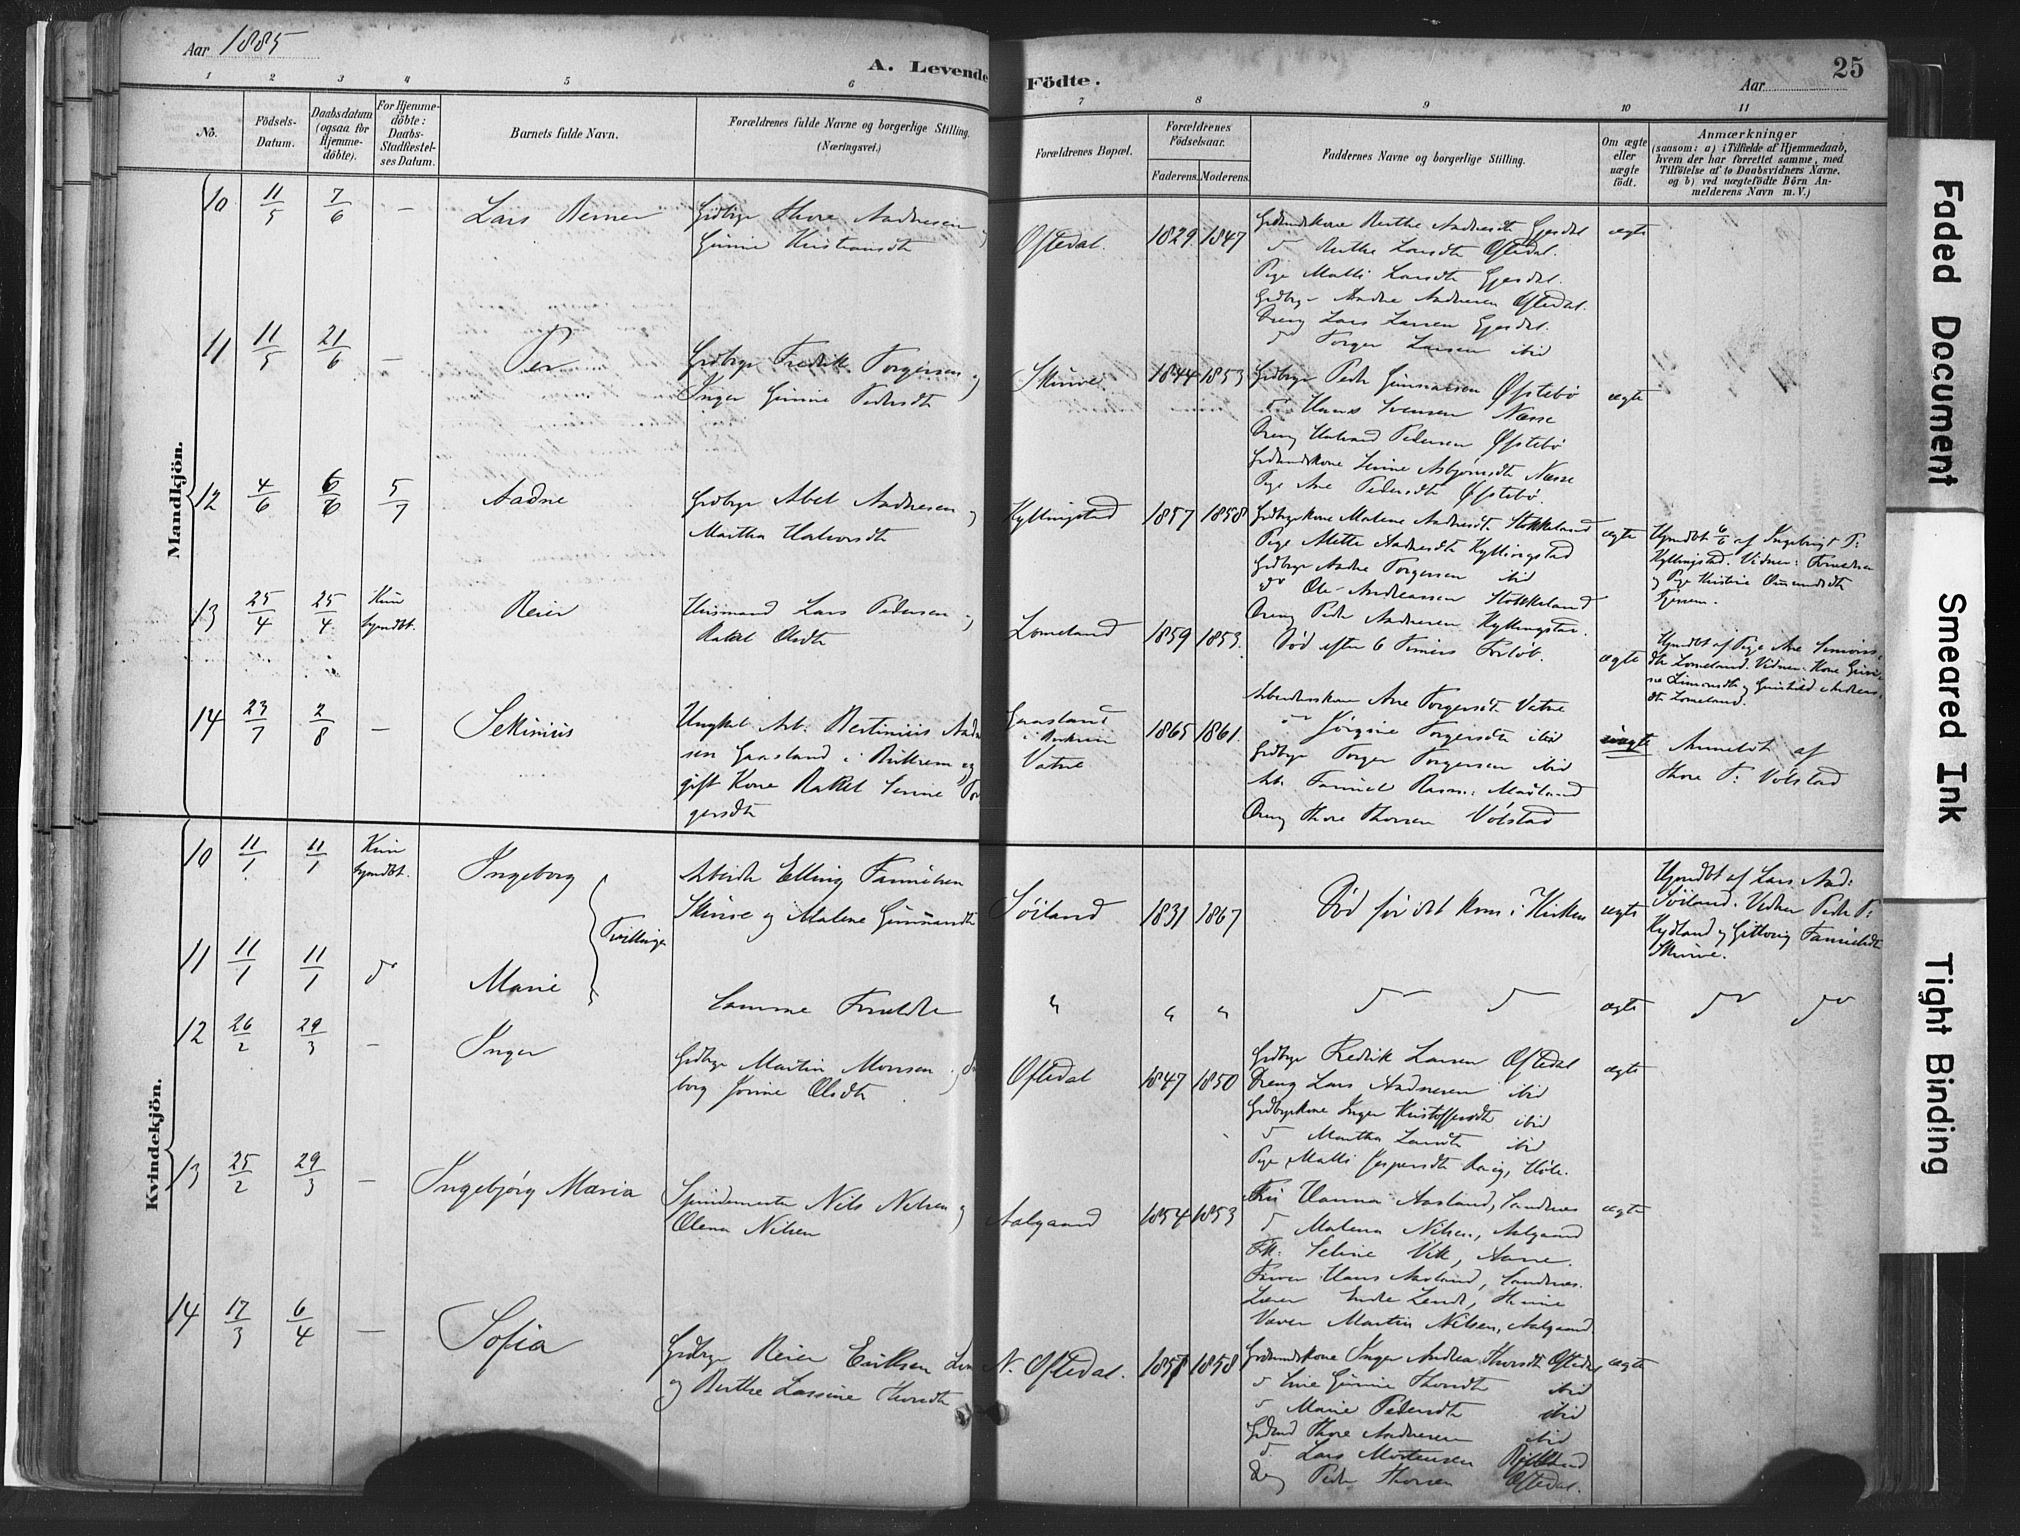 Aar 1885
A. Levende Födte.
Aar
25
1 2 3 4 5 6 7 8 9 10 11
No.
Födsels-Datum.
Daabsdatum (ogsaa for Hjemme-döbte).
For Hjemme-döbte: Daabs-Stadfæstel-ses Datum.
Barnets fulde Navn.
Forældrenes fulde Navne og borgerlige Stilling. (Næringsvei.)
Forældrenes Bopæl.
Forældrenes Födselsaar.
Faderens. Moderens.
Faddernes Navne og borgerlige Stilling.
Om ægte eller uægte födt.
Anmærkninger
(saasom: a) i Tilfælde af Hjemmedaab,
hvem der har forrettet samme, med
Tilföielse af to Daabsvidners Navne,
og b) ved uægtefödte Börn An-
melderens Navn m. V.)
Mandkjön.
10 11/5 7/6 — Lars Berner
Grdbrgr Thore Aadnesen og
Gunne Kristiansdtr
Oftedal. 1829 1847
Grdmdskone Berthe Aadnesdtr Gjesdal
do Berthe Larsdtr Oftedal.
Pige Malli Larsdtr Gjesdal.
Grdbrgr Aadne Aadnesen Oftedal.
Dreng Lars Larsen Gjesdal.
do Torger Larsen ibid
ægte
11 11/5 21/6 — Per
Grdbrgr Fredrik Torgersen og
Inger Gunne Pedersdtr
Skurve 1844 1853
Grdbrgr Peder Gunnarsen Øfstebø
do Hans Svensen Næsse
Dreng Halvard Pedersen Øfstebø
Grdmdskone Sinne Asbjørnsdtr Næsse
Pige Ane Pedersdtr Øfstebø.
ægte
12 4/6 6/6 5/7 Aadne
Grdbrgr Abel Aadnesen og
Martha Halvorsdtr
Kyllingstad 1857 1858
Grdbrgrkone Malene Aadnesdt. Stokkeland
Pige Mette Aadnesdtr Kyllingstad
Grdbrgr Aadne Torgersen ibid
do Ole Andreassen Stokkeland
Dreng Peder Aadnesen Kyllingstad.
ægte
Hjmdbt 6/6 af Ingebrigt T:
Kyllingstad. Vidner:
og Pige Kristine Omundsdtr
13 25/4 25/4 Kun hjmdbt. Reier
Husmand Lars Pedersen og
Rakel Olsdtr
Lomeland 1859 1853.
Død efter 6 Timers Forløb.
ægte
Hjmdbt af Pige Ane Simons-
dtr Lomeland. Vidner: Kone Guri-
ne Simonsdtr og Gunhild Andreas-
dtr Lomeland.
14 23/7 2/8 — Sekinius
Ungkal. Arb: Bertinius Aadne-
sen Gaasland i Birkrem og
gift Kone Rakel Serine Tor-
gersdtr
Gaasland
i Birkrem
Vatne
1865 1861.
Arbeiderskone Ane Torgersdt. Vatne
do Jørgine Torgersdtr ibid
Grdbrgr Torger Torgersen ibid
Arb. Samuel Rasm: Madland
Dreng Thore Thorsen Vølstad
uægte
Anmeldt af
Thore T: Vølstad
Kvindekjön.
10 11/1 11/1 Kun hjmdbt. Ingeborg
Tvillinger
Arbeider Elling Samuelsen
Skurve og Malene Gunnarsdtr
Søiland 1831 1867
Død før det kom i Kirken
ægte
Hjmdbt af Lars Aad:
Søiland. Vidner Peder P:
Kydland og Gitborg Samuelsdtr
Skurve.
11 11/1 11/1 do Marie
Samme Forældre
" " "
do do
ægte
do do
12 26/2 29/3 — Inger
Grdbrgr Martin Monsen og In-
borg Jorine Olsdtr
Oftedal 1847 1850
Grdbrgr Fredrik Larsen Oftedal
Dreng Lars Aadnesen ibid
Grdbrgrkone Inger Kristoffersdtr ibid
do Martha Larsdtr ibid
Pige Malli Jespersdtr Høle.
ægte
13 25/2 29/3 — Ingebjørg Maria
Spindemester Nils Nilsen og
Olena Nilsen
Aalgaard 1854 1853
Fru Hanna Aasland, Sandnes
do Malena Nilsen, Aalgaard
Frk: Seline Vik,
Hans Aasland, Sandnes.
Lærer Endre
Væver Martin Nilsen, Aalgaard
ægte
14 17/3 6/4 — Sofia
Grdbrgr Reier Eriksen
og Berthe Lassine Thorsdtr
N. Oftedal. 1857 1858
Grdmndskone Inger Andrea Thorsdtr Oftedal
do Sine Gunne Thorsdtr ibid
do Marie Pedersdtr ibid
Grdmd Thore Aadnesen ibid
do Lars Mortensen
Dreng Peder Thorsen Oftedal.
ægte
Faded Document
Smeared Ink
Tight Binding